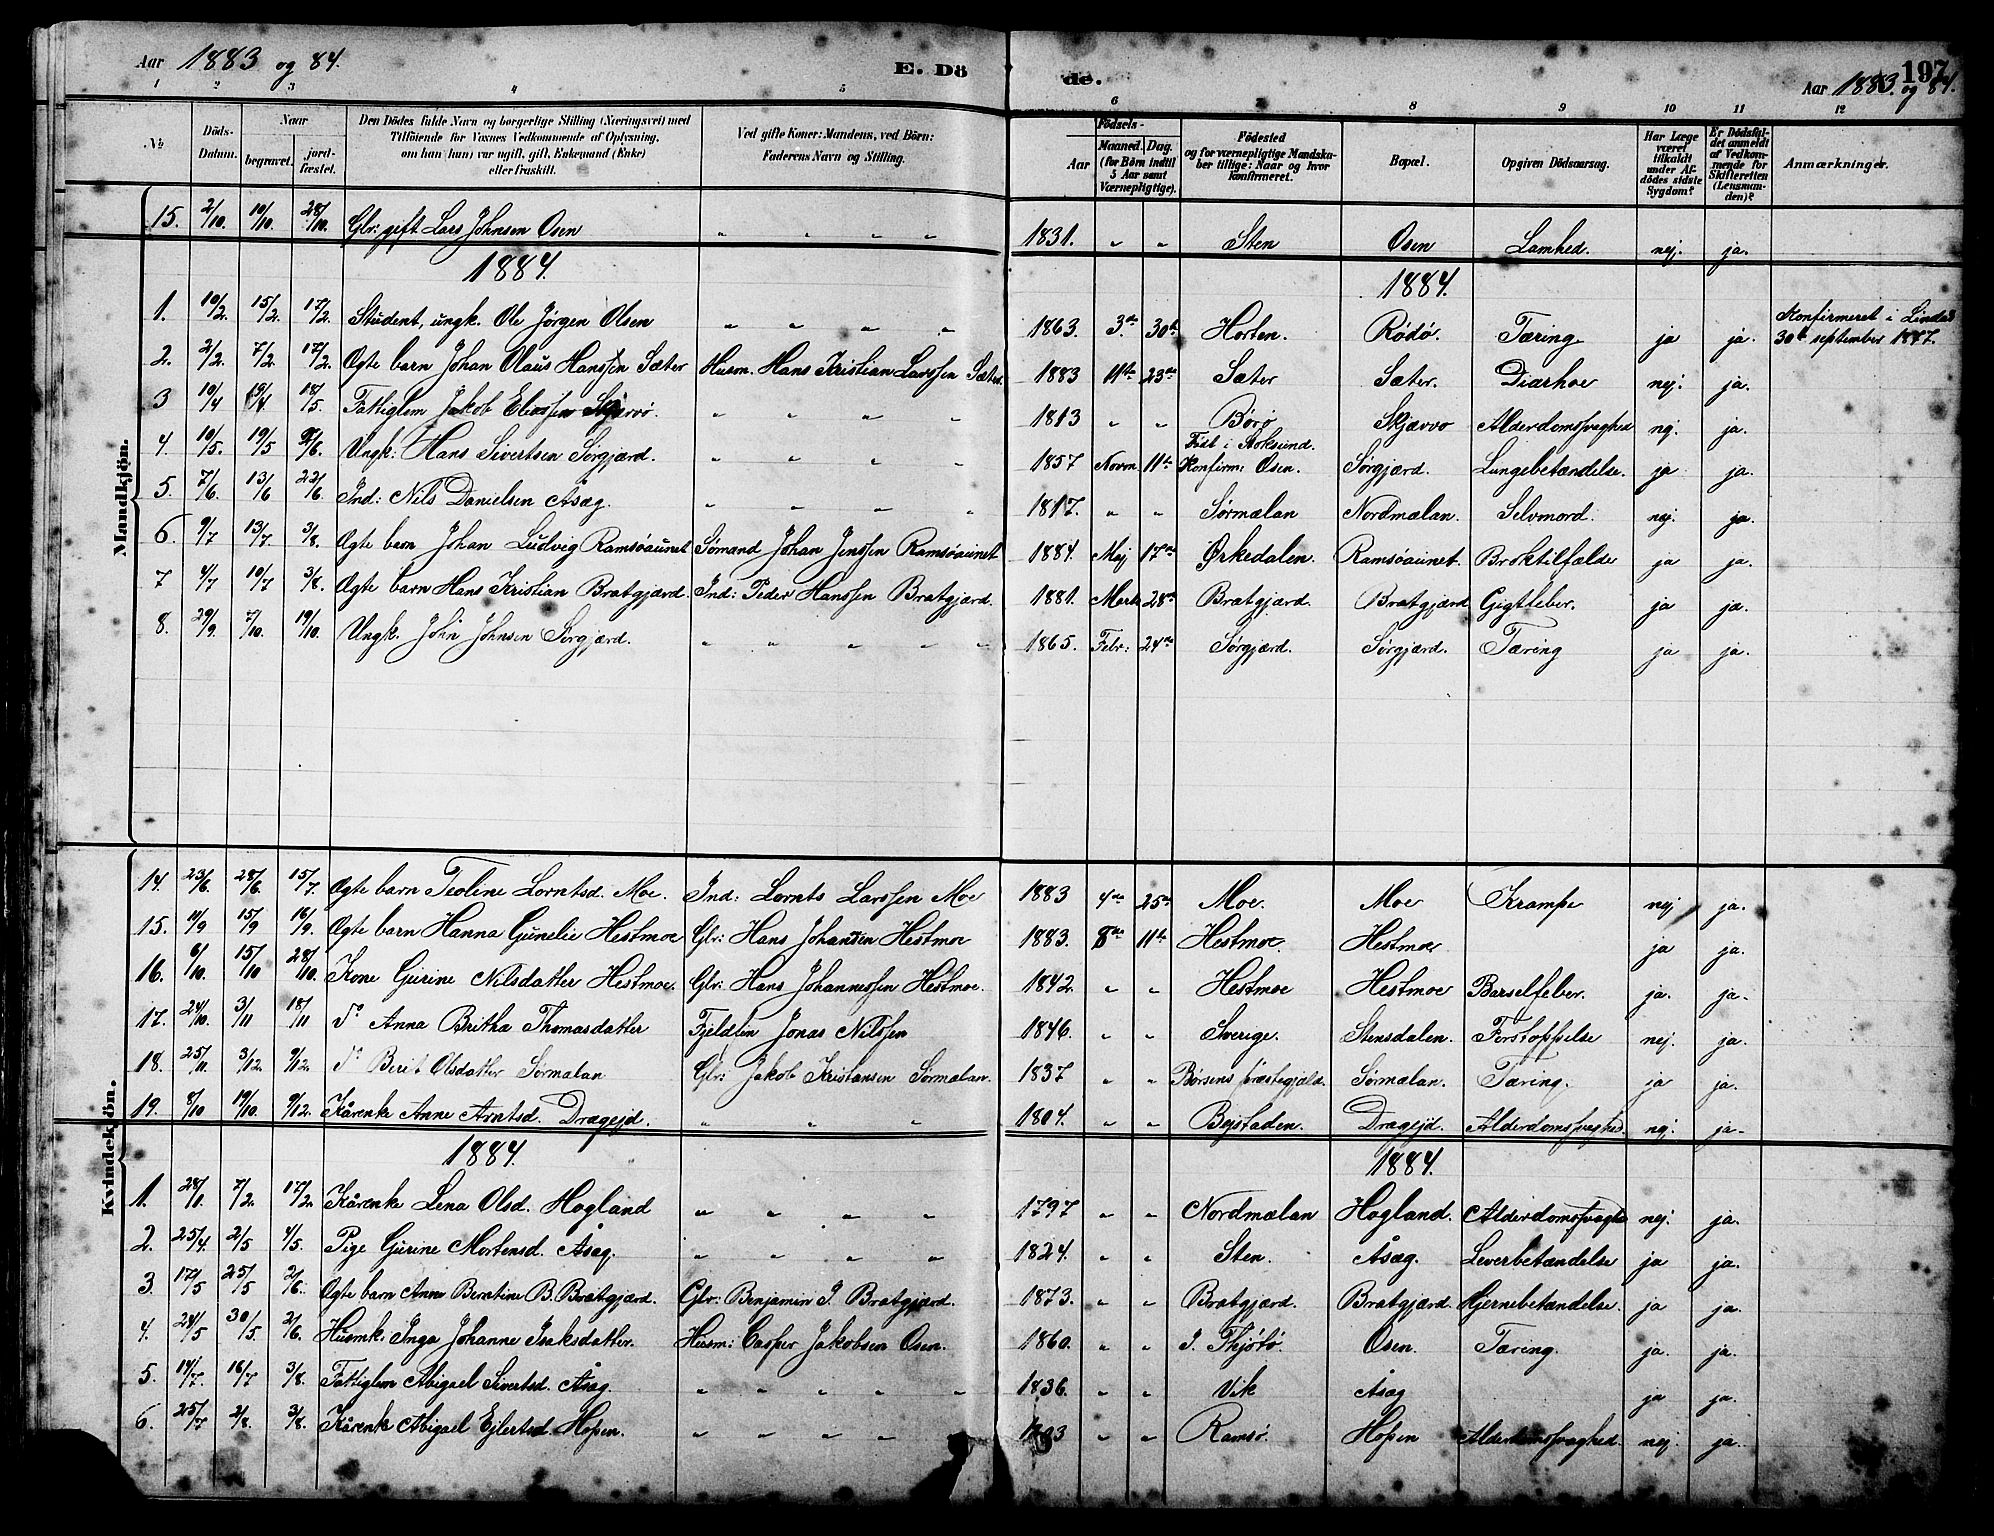 Aar 1883 og 84. E. Dö de. 197
Aar 1883 og 84.
1 2 3 4 5 6 7 8 9 10 11 12
№ Döds-Datum. Naar begravet. jord-fæstet. Den Dödes fulde Navn og borgerlige Stilling (Næringsvei) med Tilföiende for Voxnes Vedkommende af Oplysning, om han (hun) var ugift, gift, Enkemand (Enke) eller fraskilt. Ved gifte Koner: Mandens, ved Börn: Faderens Navn og Stilling. Födsels- Aar Maaned. Dag. (for Börn indtil 5 Aar samt Værnepligtige). Födested og for værnepligtige Mandskaber tillige: Naar og hvor konfirmeret. Bopæl. Opgiven Dödsaarsag. Har Læge været tilkaldt under Afdödes sidste Sygdom? Er Dödsfaldet anmeldt af Vedkommende for Skifteretten (Lensmanden)? Anmærkninger.
Mandkjön.
15. 2/10. 10/10 28/10. Glr: gift Lars Johnsen Osen " " " " 1831. " " Sten Osen Lamhed. nej. ja.
1884. 1884.
1. 10/2. 15/2. 17/2. Student, ungk. Ole Jörgen Olsen " " " " 1863. 3de 30te Horten. Rödö. Tæring. ja ja. Konfirmeret i Lindås 30te september 1877.
2. 2/2. 7/2. 17/2. Ægte barn Johan Olaus Hanssen Sæter Husm. Hans Kristian Larssen Sæter. 1883 11te 23de Sæter Sæter. Diarhoe nej. ja.
3 10/4 19/4. 18/5. Fattiglem Jakob Eliassen Skjærvö. " " " " 1813 " " Börö Skjævvo Alderdomssvaghed nej. ja.
4. 10/5. 19/5 2/6. Ungk: Hans Sivertsen Sörgjærd. " " " " 1857 Novm. 11te Född i Stoksund. Konfirm: Osen. Sörgjærd. Lungebetændelse. ja ja.
5. 7/6. 13/6 22/6. Ind: Nils Danielsen Åsæg. " " " " 1817. " " Sörmælan Nordmælan. Selvmord. nej. ja.
6. 9/7 13/7. 3/8. Ægte barn Johan Ludvig Ramsöaunet Sömand Johan Jenssen Ramsöaunet 1884. Maj 17de Ørkedalen. Ramsöaunet. Broktilfælde ja ja.
7 4/7 10/7 3/8. Ægte barn Hans Kristian Bratgjærd. Ind: Peder Hanssen Bratgjærd. 1881. Marts 28de Bratgjærd. Bratgjærd Gigtfeber. ja ja.
8. 29/9. 7/10. 19/10. Ungk. John Johnsen Sörgjærd. " " " " 1865. Febr: 24de Sörgjærd. Sörgjærd. Tæring ja ja.
Kvindekjön.
14. 23/6. 28/6. 15/7. Ægte barn Teoline Lorntsd. Moe. Ind: Lornts Larssen Moe 1883 4de 25de Moe. Moe Krampe nej ja.
15. 11/9 15/9 16/9. Ægte barn Hanna Gunelie Hestmoe Glr: Hans Johansen Hestmoe 1883. 8de 11te Hestmoe. Hestmoe ja ja.
16. 6/10. 15/10 28/10. Kone Gurine Nilsdatter Hestmoe. Glr: Hans Johannessen Hestmoe. 1842. " " Hestmoe Hestmoe Barselfeber. ja. ja.
17. 24/10. 3/11 18/11 Do Anna Britha Thomasdatter Fjeldfin Jonas Nilssen 1846. " " Sverige. Stensdalen. Forstoppelse nej. ja.
18. 25/11 3/12. 9/12. Do Berit Olsdatter Sörmælan Glr: Jakob Kristansen Sörmælan. 1837 " " Börsens præstegjæld. Sörmælan. Tæring. ja ja.
19. 8/10 19/10. 9/12. Kårenke Anne Arntsd. Dragejd. " " " 1804. " " Bejstaden. Dragejd. Alderdomssvaghed. nej. ja.
1884. 1884.
1. 28/1. 7/2. 17/2. Kårenke Lena Olsd. Hogland " " " " 1797 " " Nordmælan Hogland. Alderdomssvaghed nej. ja.
2. 25/4. 2/5 4/5. Pige Gurine Mortensd. Åsæg. " " " " 1824. " " Sten. Åsæg. Leverbetændelse ja ja.
3. 17/5 25/5 2/6. Ægte barn Anne Beratine B. Bratgjærd. Glr: Benjamin J. Bratgjærd. 1873. " " Bratgjærd. Bratgjærd. Hjernebetændelse. ja ja.
4. 24/5 30/5. 2/6. Husmk: Inga Johanne Isaksdatter. Husm: Casper Jakobsen Osen. 1860. " " I. Thjötö. Osen. Tæring. ja. ja.
5. 14/7. 16/7 3/8. Fattiglem Abigael Sivertsd. Åsæg. " " " " " 1836. " " Vik Åsæg ja ja.
6. 25/7 2/8. 3/8. Kårenke Abigael Ejlertsd. Hopen. " " " " " " " Ramsö. Hopen Alderdomssvaghed. nej ja.